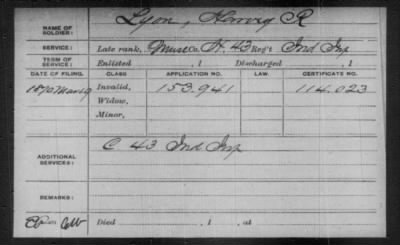 NAME OF SOLDIER: Lyon, Harvey R
SERVICE: Late rank, Musc Co. H, 43 Reg't Ind Inf
TERM OF SERVICE: Enlisted , 1 Discharged , 1
DATE OF FILING. CLASS APPLICATION NO. LAW. CERTIFICATE NO.
1870 Mar 19 Invalid, 153.941 114.023
Widow,
Minor,
ADDITIONAL SERVICES: C 43 Ind Inf
REMARKS:
Died , 1 , at